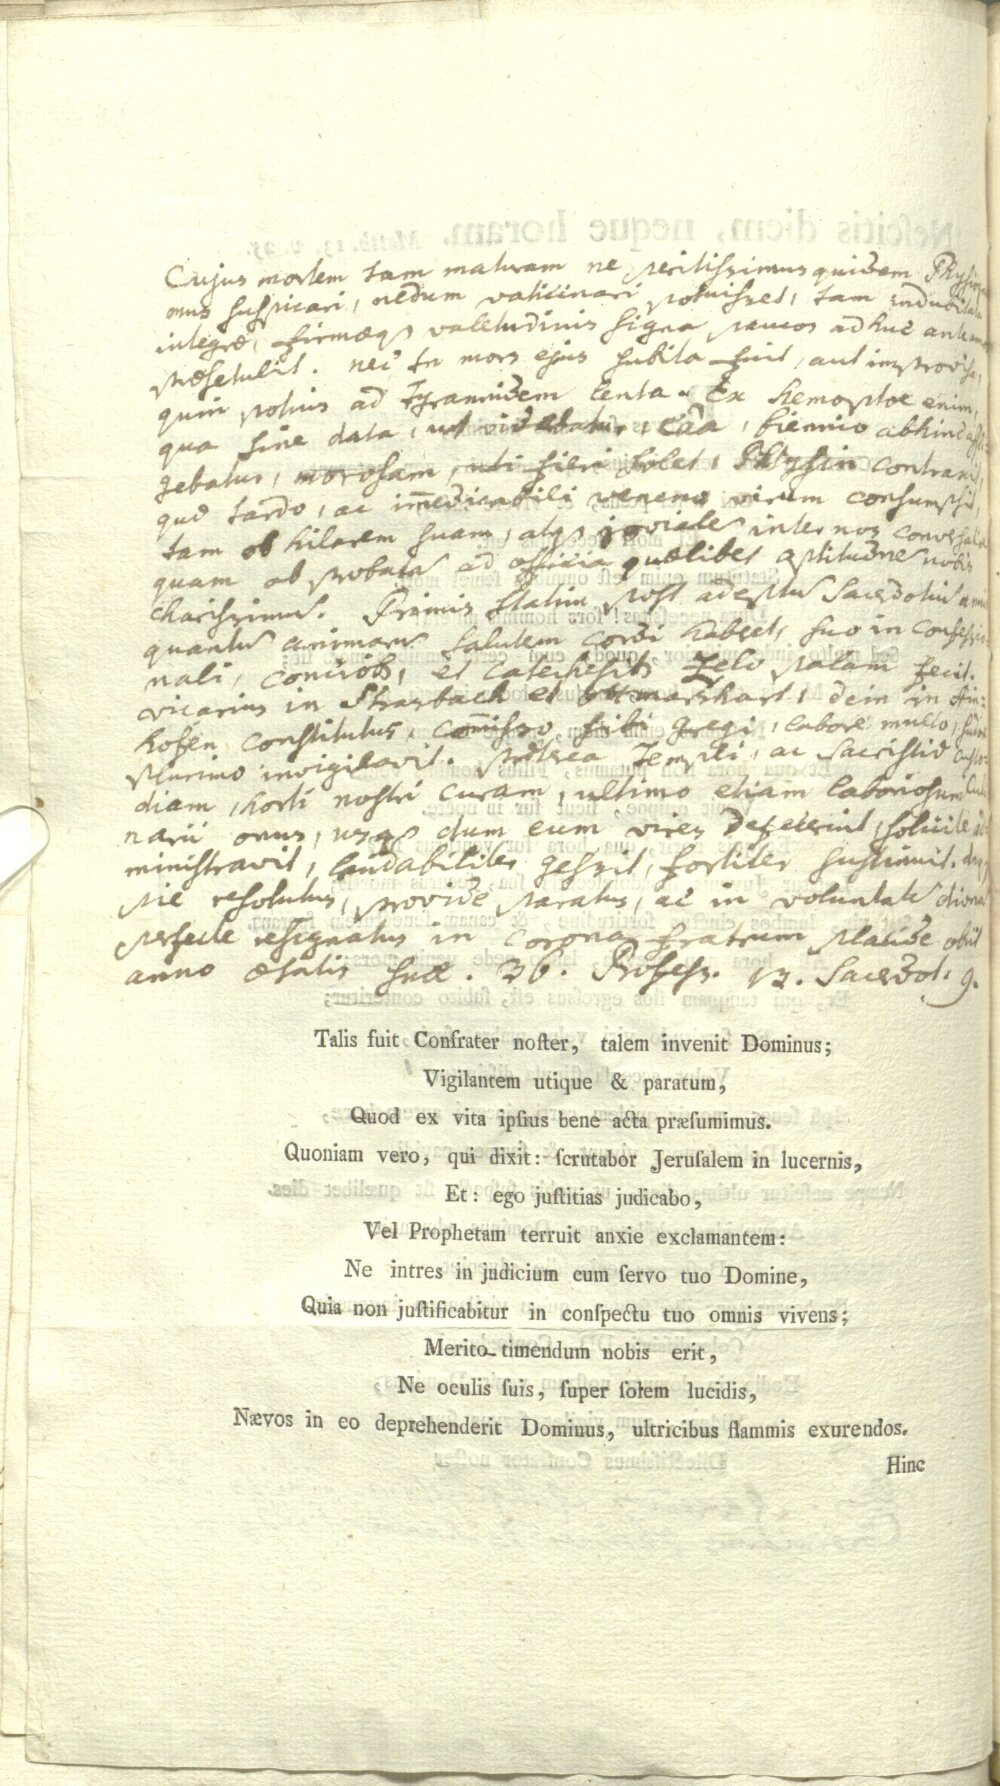 Cujus mortem tam maturam ne peritissimus quidem
mus suspicari, nedum vaticinari potuisset, tam indubitata
integræ, firmæq3 valetudinis signa paucos adhuc ante
præsetulit. nec tn mors ejus subita fuit, aut improvisa,
quin potius ad Tyrannidem lenta. Ex Hemoptoe enim,
qua sine data, ut videbatur, cãa, biennio abhinc
gebatur, morosam, uti fieri solet, Phtysin contraxit,
quæ tardo, ac im̄edicabili veneno virum consumpsit,
tam ob hilarem suam, atq3 joviale inter nos
quam ob probatã ad officia quælibet aptitudinē nobis
charissimum. Primis statim post adeptū Sacerdotiū
quantū animarū salutem cordi habeat, suo in
nali, et catechesis Zelo palam fecit.
vicarius in Strasbach et dein in
hofen constitutus, com̄isso sibi gregi, labore multo,
plurimo invigilavit. Præterea Templi, ac Sacristiæ
diam, horti nostri curam, ultimo etiam laboriosum
narii onus, usq3 dum eum vires
ministravit, laudabiliter gessit, fortiter sustinuit.
pie resolutus, provide paratus, ac in voluntatē
perfecte resignatus in corona fratrum placide obiit
anno ætatis suæ. 36. Profess. 13. Sacerdot. 9.
Talis fuit Confrater noſter, talem invenit Dominus;
Vigilantem utique & paratum,
Quod ex vita ipſius bene acta præſumimus.
Quoniam vero, qui dixit: ſcrutabor Jeruſalem in lucernis,
Et: ego juſtitias judicabo,
Vel Prophetam terruit anxie exclamantem:
Ne intres in judicium cum ſervo tuo Domine,
Quia non juſtificabitur in conſpectu tuo omnis vivens;
Merito timendum nobis erit,
Ne oculis ſuis, ſuper ſolem lucidis,
Nævos in eo deprehenderit Dominus, ultricibus flammis exurendos.
Hinc